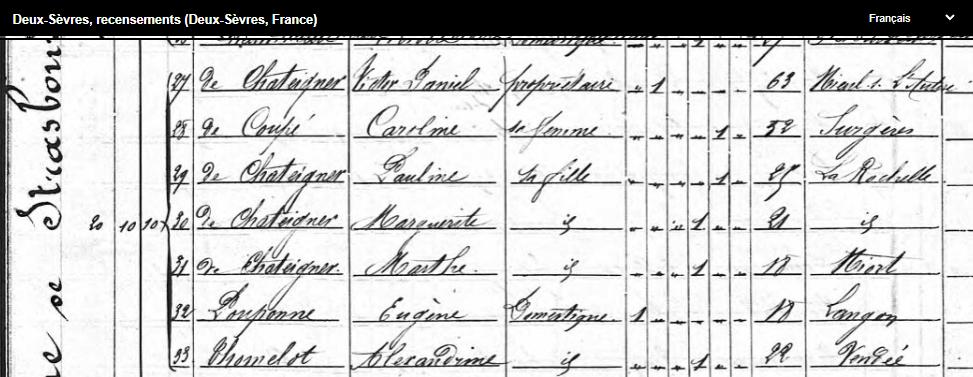 Deux-Sèvres, recensements (Deux-Sèvres, France) Français
rue de Strasbour
27 de Chateigner Victor Daniel propriétaire " 1 " " " " 63
28 de Coupé Caroline sa femme " " " " 1 " 52 Surgères
20 10 10
29 de Chateigner Pauline sa fille " " " " 1 " 25 La Rochelle
30 de Chateigner Marguerite id " " " 1 " " 21 id
31 de Chateigner Marthe id " " " 1 " " 18 Niort
32 Eugène Domestique 1 " " " " " 18 Langon
33 Thomelot Alexandrine id " " " 1 " " 22 Vendée